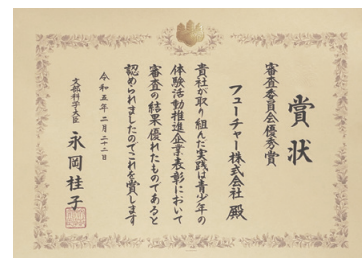 賞状
審査委員会優秀賞
フューチャー株式会社 殿
貴社が取り組んだ実践は青少年の
体験活動推進企業表彰において
審査の結果優れたものであると
認められましたのでこれを賞します
令和五年二月二十二日
文部科学大臣 永岡桂子